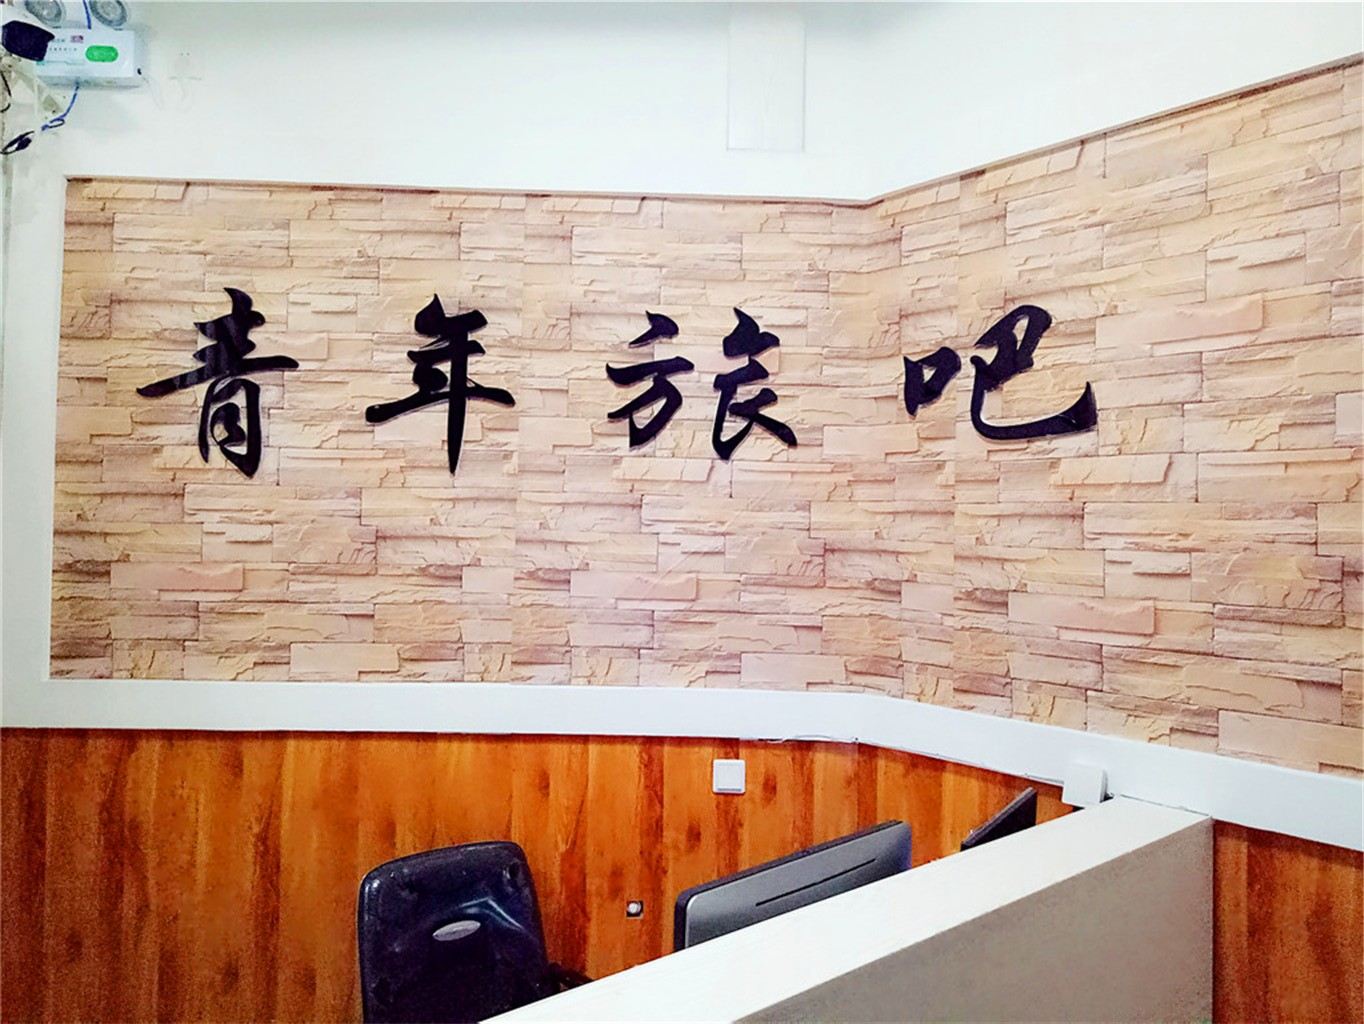 青年旅吧